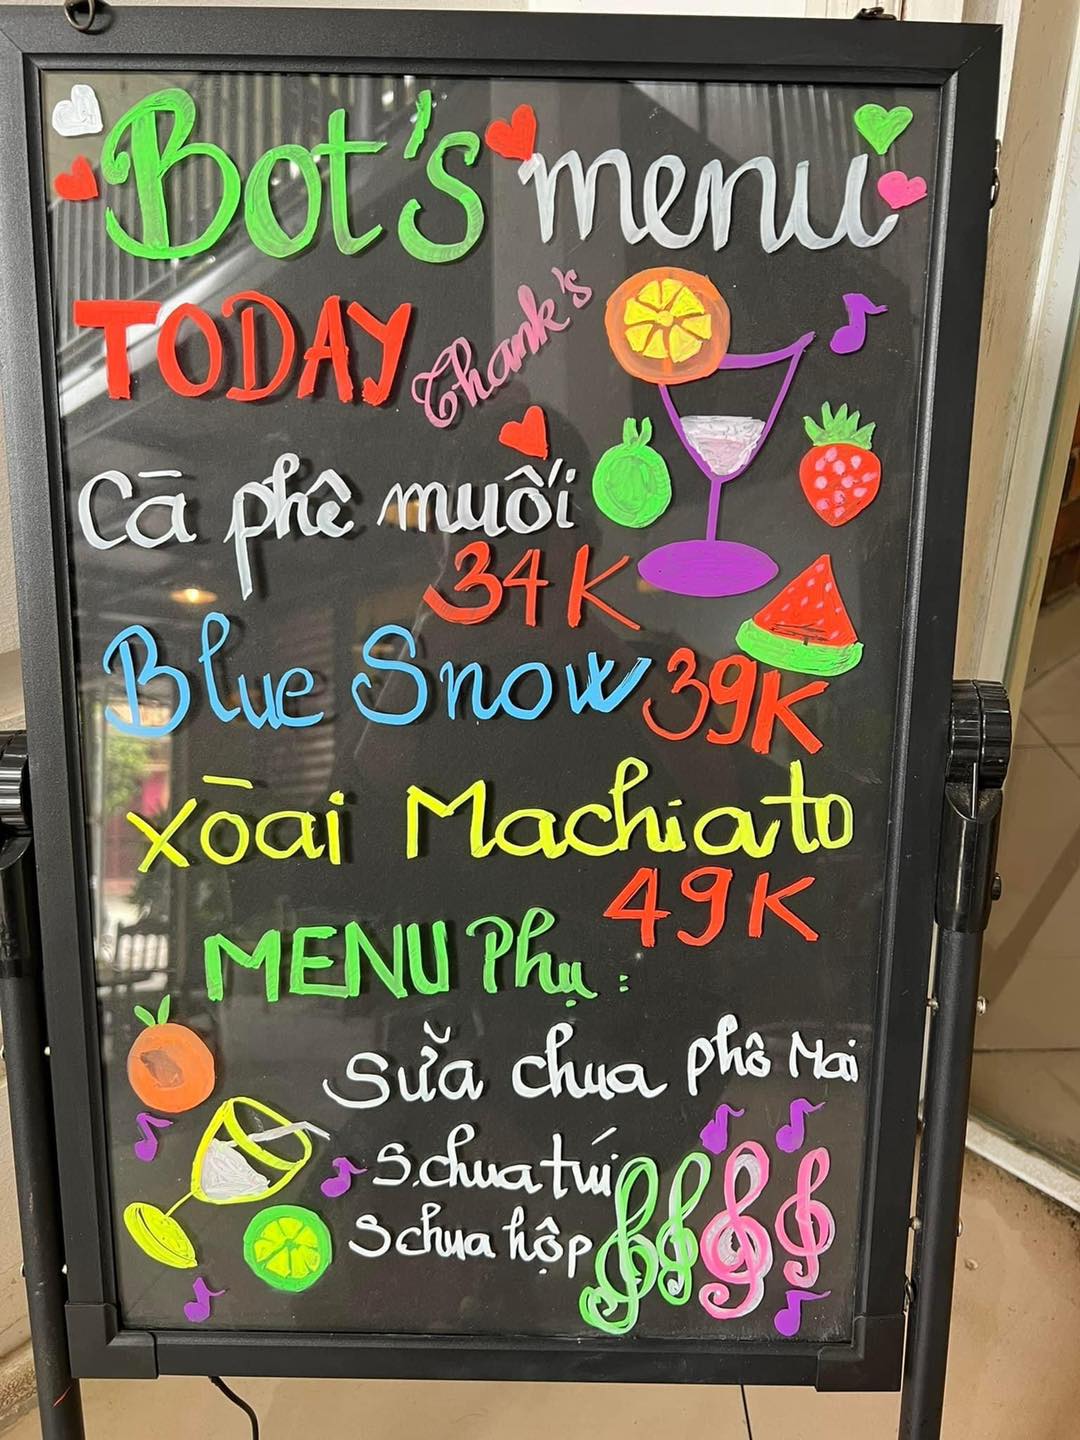 Bot's menu
TODAY Thank's
Cā phê muối
34K
Blue Snow 39K
Xōai Machiato
49K
MENU Phụ :
Sữa chua phô Mai
S.chua túi
S chua hộp